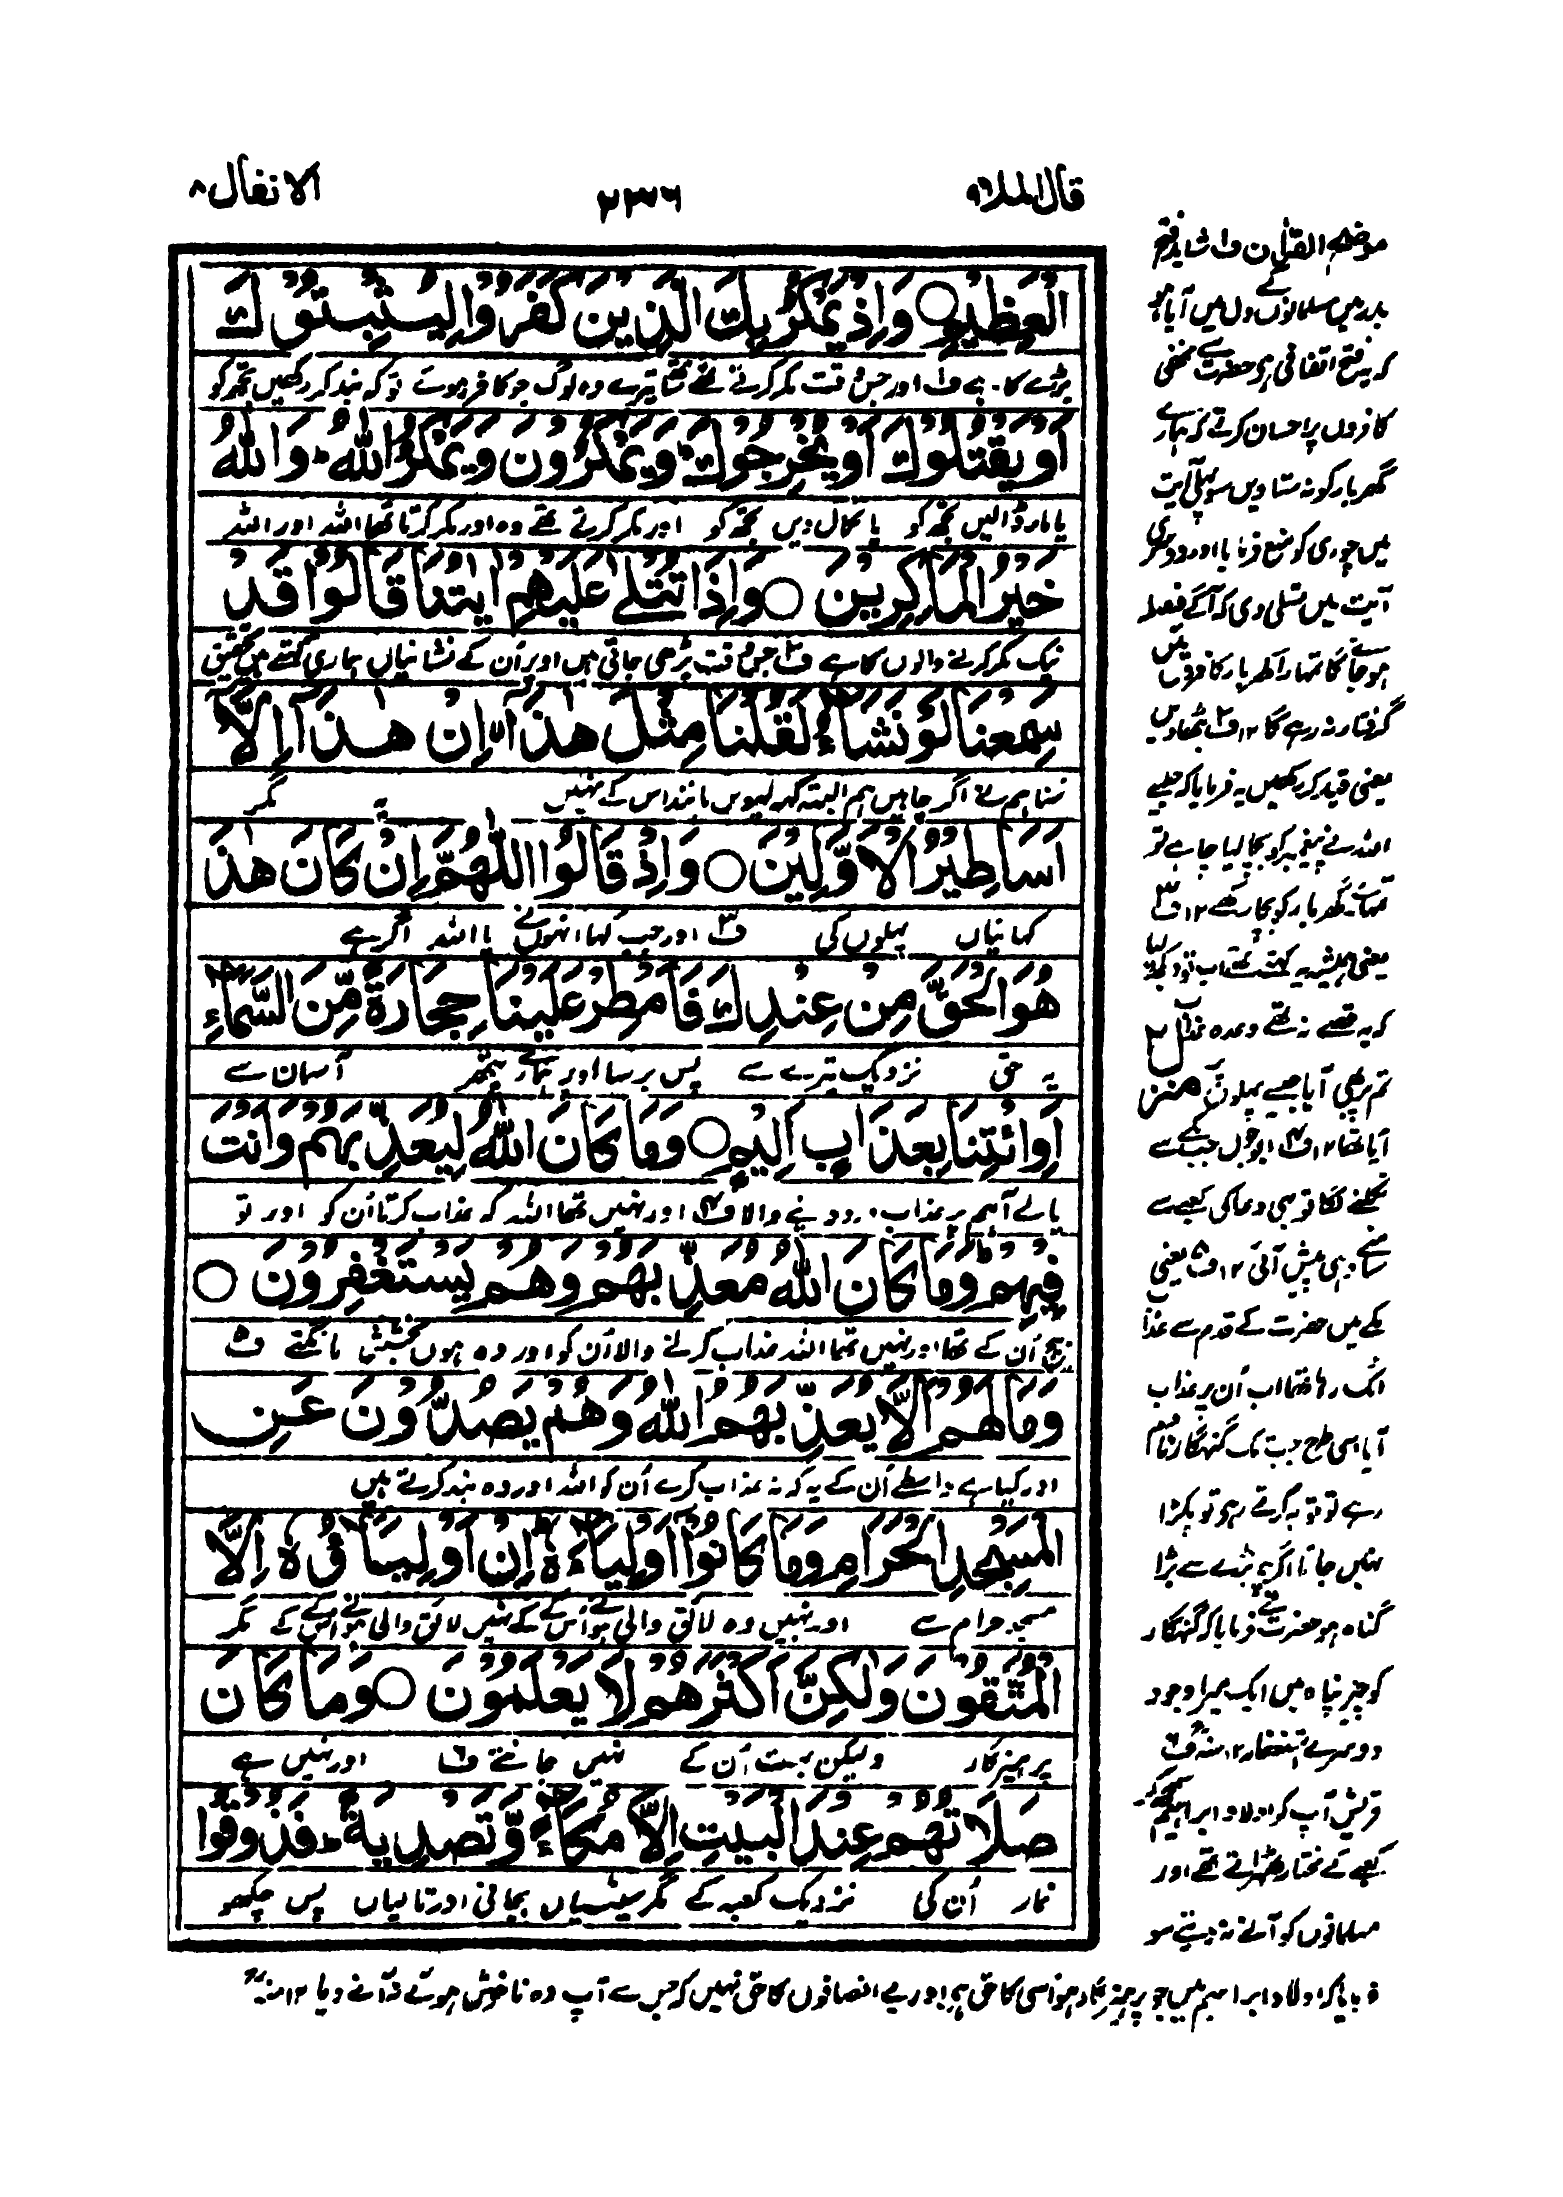 قال الملا ٩
٢٣٦
الانفال ٨
الْعَظِيْمِ ○ وَاِذْ يَمْكُرُ بِكَ الَّذِيْنَ كَفَرُوْا لِيُثْبِتُوْكَ
بڑے کا ہے ف۱ اور جس وقت مکر کرتے تھے ساتھ تیرے وہ لوگ جو کافر ہوئے تو کہ بند کر رکھیں تجھ کو
اَوْ يَقْتُلُوْكَ اَوْ يُخْرِجُوْكَ ؕ وَيَمْكُرُوْنَ وَيَمْكُرُ اللّٰهُ ؕ وَاللّٰهُ
یا مار ڈالیں تجھ کو یا نکال دیں تجھ کو اور مکر کرتے تھے وہ اور مکر کرتا تھا اللہ اور اللہ
خَيْرُ الْمٰكِرِيْنَ ○ وَاِذَا تُتْلٰى عَلَيْهِمْ اٰيٰتُنَا قَالُوْا قَدْ
نیک مکر کرنے والوں کا ہے ف۲ جس وقت پڑھی جاتی ہیں اوپر اُن کے نشانیاں ہماری کہتے ہیں تحقیق
سَمِعْنَا لَوْ نَشَآءُ لَقُلْنَا مِثْلَ هٰذَآ ۙ اِنْ هٰذَآ اِلَّآ
سنا ہم نے اگر چاہیں ہم البتہ کہہ لیویں مانند اس کے نہیں یہ مگر
اَسَاطِيْرُ الْاَوَّلِيْنَ ○ وَاِذْ قَالُوا اللّٰهُمَّ اِنْ كَانَ هٰذَا
کہانیاں پہلوں کی ف۳ اور جب کہا انہوں نے یا اللہ اگر ہے
هُوَ الْحَقَّ مِنْ عِنْدِكَ فَاَمْطِرْ عَلَيْنَا حِجَارَةً مِّنَ السَّمَآءِ
یہ حق نزدیک تیرے سے پس برسا اوپر ہمارے پتھر آسمان سے
اَوِ ائْتِنَا بِعَذَابٍ اَلِيْمٍ ○ وَمَا كَانَ اللّٰهُ لِيُعَذِّبَهُمْ وَاَنْتَ
یا لے آ ہم پر عذاب درد دینے والا ف۴ اور نہیں تھا اللہ کہ عذاب کرتا اُن کو اور تو
فِيْهِمْ ؕ وَمَا كَانَ اللّٰهُ مُعَذِّبَهُمْ وَهُمْ يَسْتَغْفِرُوْنَ ○
بیچ اُن کے تھا اور نہیں تھا اللہ عذاب کرنے والا اُن کو اور وہ ہوں بخشش مانگتے ف۵
وَمَا لَهُمْ اَلَّا يُعَذِّبَهُمُ اللّٰهُ وَهُمْ يَصُدُّوْنَ عَنِ
اور کیا ہے واسطے اُن کے یہ کہ نہ عذاب کرے اُن کو اللہ اور وہ بند کرتے ہیں
الْمَسْجِدِ الْحَرَامِ وَمَا كَانُوْٓا اَوْلِيَآءَهٗ ؕ اِنْ اَوْلِيَآؤُهٗٓ اِلَّا
مسجد حرام سے اور نہیں وہ لائق والی ہونے اُس کے کے نہیں لائق والی ہونے اُس کے مگر
الْمُتَّقُوْنَ وَلٰكِنَّ اَكْثَرَهُمْ لَا يَعْلَمُوْنَ ○ وَمَا كَانَ
پرہیزگار ولیکن بہت اُن کے نہیں جانتے ف۶ اور نہیں ہے
صَلَاتُهُمْ عِنْدَ الْبَيْتِ اِلَّا مُكَآءً وَّتَصْدِيَةً ؕ فَذُوْقُوا
نماز اُن کی نزدیک کعبہ کے مگر سیٹیاں بجانی اور تالیاں پس چکھو
موضح القرآن ف۱ شاید فتح
بدر میں مسلمانوں کے دل میں آیا ہو
کہ یہ فتح اتفاقی ہے حضرت سے مخفی
کافروں پر احسان کرتے کہ ہمارے
گھر بار کو نہ ستاویں سو پہلی آیت
میں چوری کو منع فرمایا اور دوسری
آیت میں تسلی دی کہ آگے فیصلہ
ہو جائے گا تمہارا گھر بار کافروں میں
گرفتار نہ رہے گا ۱۲ ف۲ بٹھادیں
یعنی قید کر رکھیں یہ فرمایا کہ جیسے
اللہ نے پیغمبر کو بچا لیا چاہے تو
تمہارے گھر بار کو بچا رکھے ۱۲ ف۳
یعنی ہمیشہ یہ کہتے تھے اب تو دیکھ لیا
کہ یہ قصے نہ تھے وعدہ عذاب کا
تم پر بھی آیا جیسے پہلوں پر
آیا تھا ۱۲ ف۴ ابوجہل جب مکے سے
نکلنے لگا تو یہی دعا کی کعبے کے
سامنے وہی پیش آئی ۱۲ ف۵ یعنی
مکے میں حضرت کے قدم سے عذاب
اٹک رہا تھا اب اُن پر عذاب
آیا اسی طرح جب تک گنہگار نادم
رہے تو توبہ کرتے رہے تو پکڑا
نہیں جاتا اگرچہ بڑے سے بڑا
گناہ ہو حضرت نے فرمایا کہ گنہگار
کو چیز پناہ ہیں ایک میرا وجود
دوسرے استغفار ۱۲ منہ ف۶
قریش آپ کو اولاد ابراہیم سمجھ کر
کعبے کے مختار ٹھہراتے تھے اور
مسلمانوں کو آنے نہ دیتے سو
فرمایا کہ اولاد ابراہیم میں جو پرہیزگار ہو اسی کا حق ہے اور بے انصافوں کا حق نہیں کہ جس سے آپ وہ ناخوش ہوئے نہ آنے دیا ۱۲ منہ